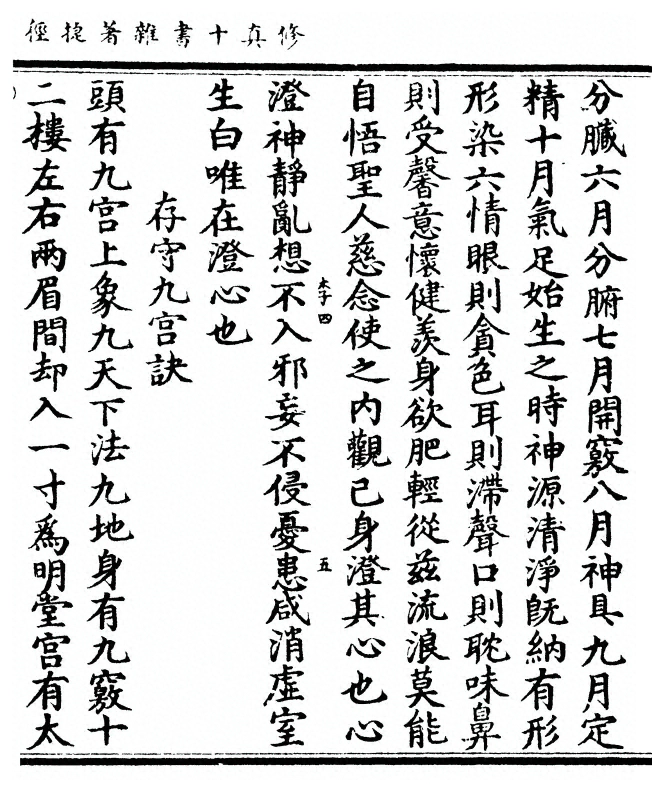 修真十書雜著捷徑
分臟六月分腑七月開竅八月神具九月定
精十月氣足始生之時神源清淨旣納有形
形染六情眼則貪色耳則滯聲口則耽味鼻
則受馨意懷健羨身欲肥輕從茲流浪莫能
自悟聖人慈念使之内觀己身澄其心也心
木子四
五
澄神靜亂想不入邪妄不侵憂患咸消虛室
生白唯在澄心也
存守九宮訣
頭有九宮上象九天下法九地身有九竅十
二樓左右兩眉間却入一寸爲明堂宮有太